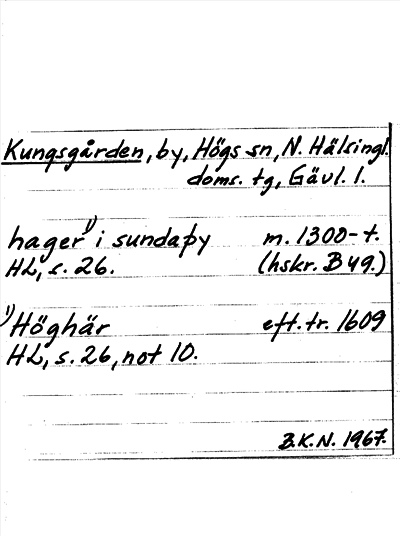 Kungsgården, by, Högs sn, N. Hälsingl.
doms. tg, Gävl. l.
hager¹⁾ i sundaþy m. 1300-t.
HL, s. 26. (hskr. B 49.)
¹⁾ Höghär eft. tr. 1609
HL, s. 26, not 10.
B.K.N. 1967.